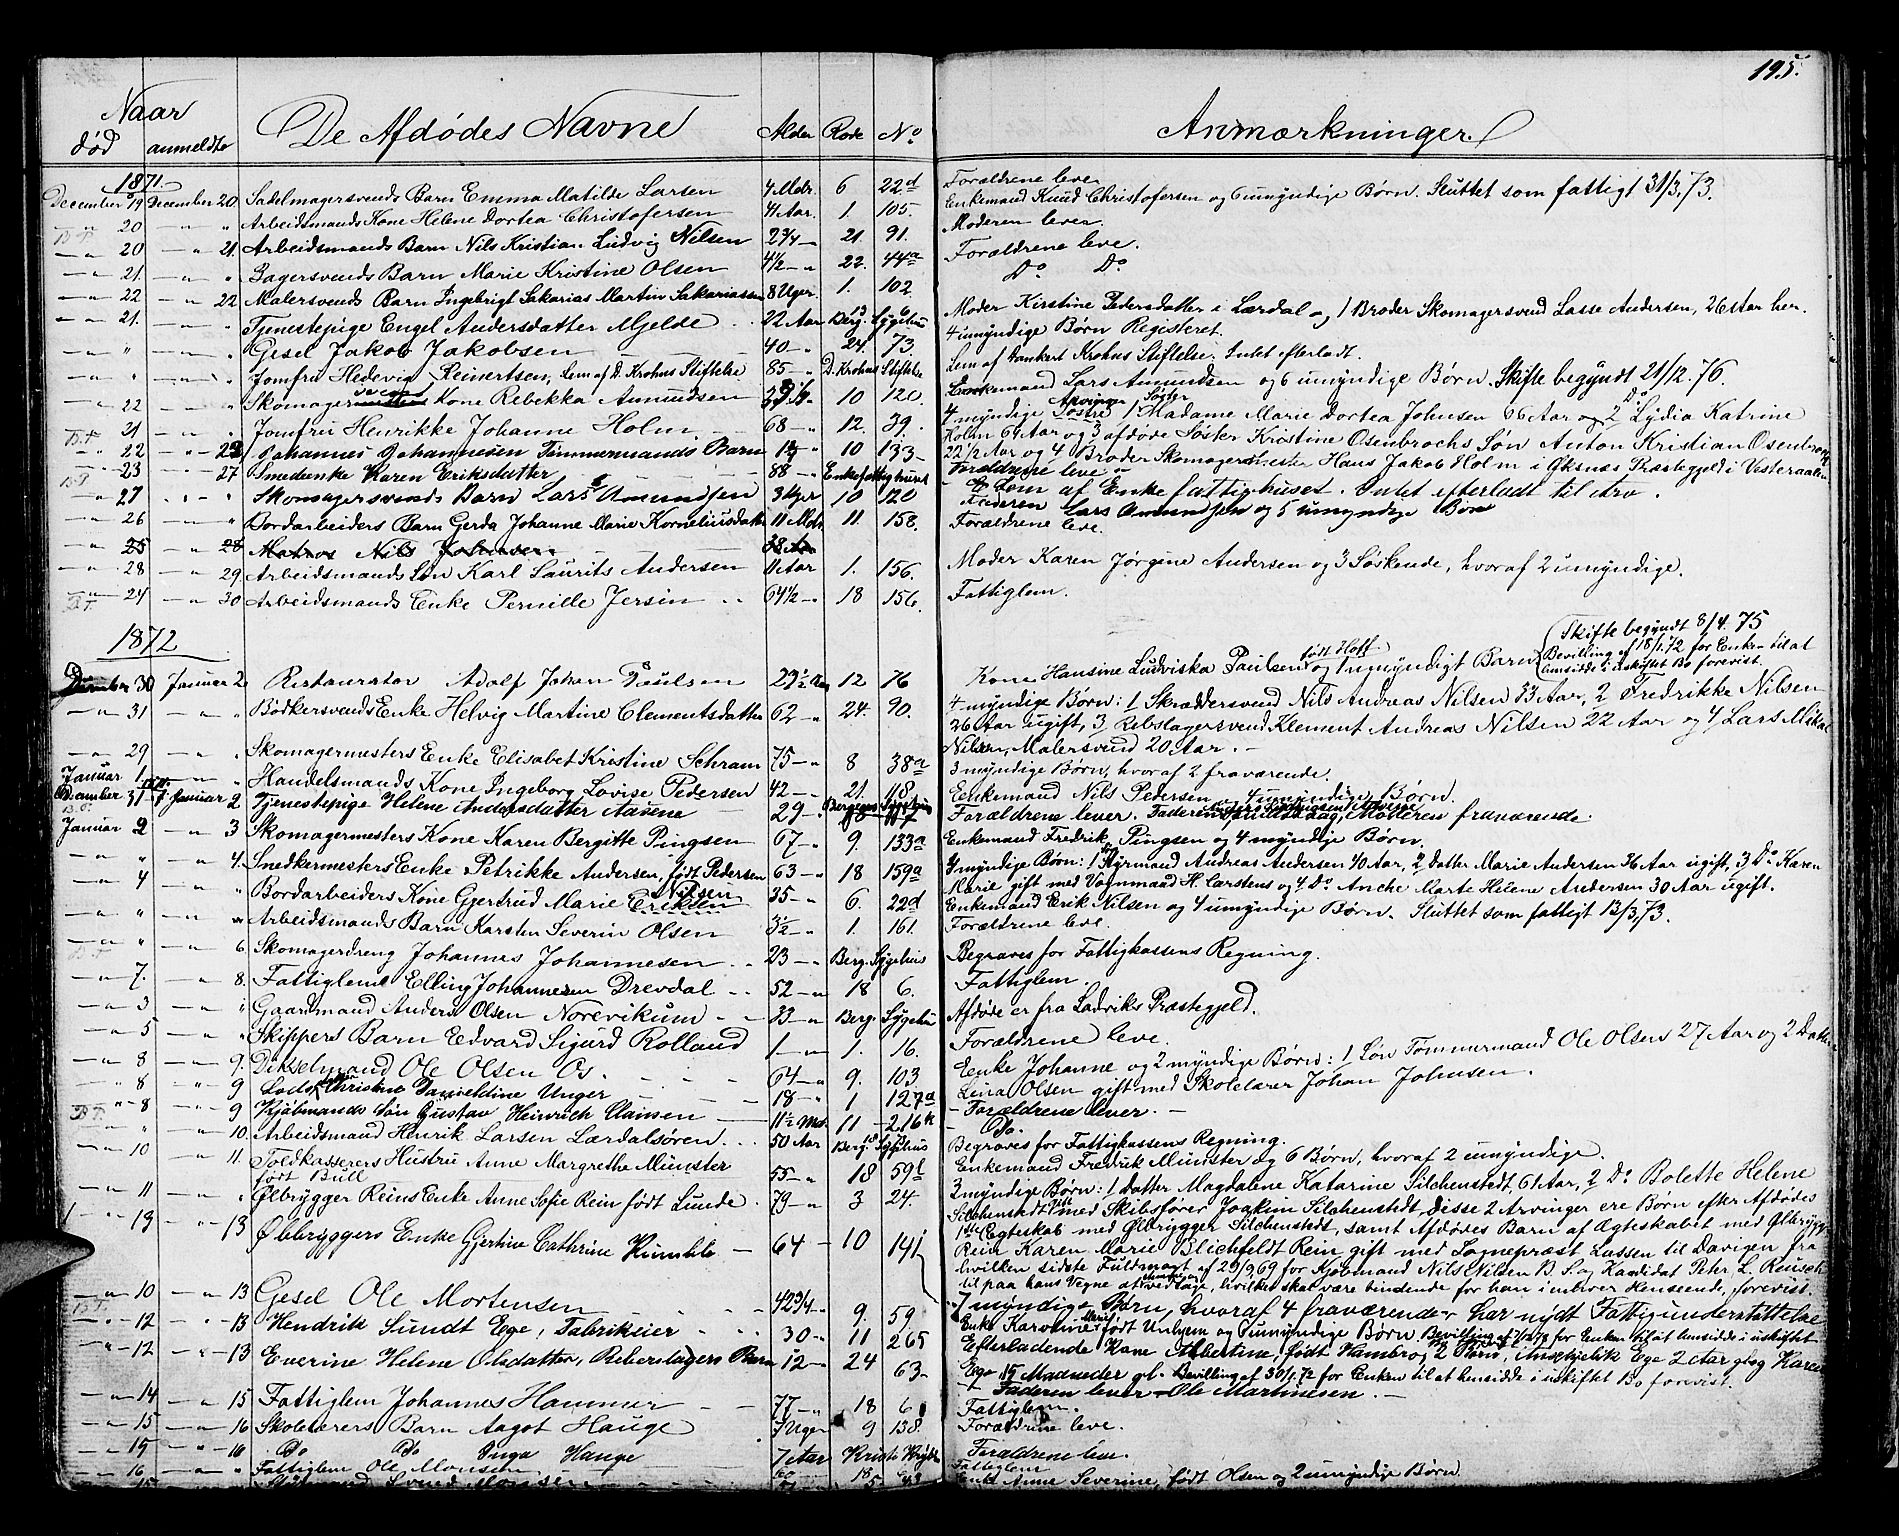 195.
Naar
død anmeldte De Afdødes Navne Alder Rode No Anmærkninger.
1871.
December 19 December 20 Sadelmagersvends Barn Emma Matilde Larsen 4 Mdr. 6 22d Forældrene leve
" 20 " " Arbeidsmands Kone Helene Dortea Christofersen 41 Aar. 1. 105. Enkemand Knud Christofersen og 6 umyndige Børn. Sluttet som fattigt 31/3.73.
" 20 " 21. Arbeidsmands Barn Nils Kristian Ludvig Nilsen 2 3/4 " 21. 91. Moderen lever
" 21. " " Bagersvends Barn Marie Kristine Olsen 4 1/2 " 22. 44a Forældrene leve.
" 22 " 22 Malersvends Barn Ingebrigt Sakarias Martin Sakariassen 8 Uger. 1. 102. Do Do
" 21. " " Tjenestepige Engel Andersdatter Mjelde 22 Aar Berg. Sygehus Moder Kirstine Pedersdatter i Lærdal og 1 Broder Skomagersvend Lasse Andersen, 26 Aar her.
" " " " Gesel Jakob Jakobsen 40 " 24. 73. 4 umyndige Børn Registeret.
" " " " Jomfru Hedevig Reinertsen, Lem af D. Krohns Stiftelse 85 " D. Krohns Stiftelse Lem af Dankert Krohns Stiftelse. Intet efterladt.
" 22 " " Skomagersvend Kone Rebekka Amundsen 10 120. Enkemand Lars Amundsen og 6 umyndige Børn. Skifte begyndt 21/12.76.
" 21 " " Jomfru Henrikke Johanne Holm 68 " 12. 39. 4 myndige Arvinger 1 Søster Madame Marie Dortea Johnsen 66 Aar og 2 Do Lydia Katrine
Holm 64 Aar og 3 afdøde Søster Kristine Osenbrochs Søn Anton Kristian Osenbroch
" 22 " 22 Johannes Johannesen Tømmermands Barn 10 133 22 1/2 Aar og 4 Broder Skomagermester Hans Jakob Holm i Øksnæs Præstegjeld i Vesteraalen
Forældrene leve
" 23 " 27 Smedenke Karen Eriksdatter 88 " Enkefattighuset Lem af Enkefattighuset. Intet efterladt til Arv.
" 27 " " Skomagersvends Barn Lars Amundsen 3 Uger 10 120 Faderen Lars Amundsen og 5 umyndige Børn
" 26 " " Bordarbeiders Barn Gerda Johanne Marie Korneliusdatter 11 Mdr. 11. 158. Forældrene leve.
" 25 " 28 Matros Nils Johnsen 38 Aar
" 28 " 29 Arbeidsmands Søn Karl Laurits Andersen 11 Aar 1. 156. Moder Karen Jørgine Andersen og 3 Søskende, hvoraf 2 umyndige.
B.F. 24 " 30 Arbeidsmands Enke Pernille Jersin 64 1/2 " 18 156. Fattiglem.
1872
Skifte begyndt 8/4.75
December 30 Januar 2 Restauratør Adolf Johan Paulsen 29 1/2 Aar 12 76 Kone Hansine Ludviska Paulsen født Hoff og 1 umyndigt Barn Bevilling af 18/1.72 for Enken til at hensidde i uskiftet Bo forevist.
" 31 " " Bødkersvends Enke Helvig Martine Clementsdatter 62 " 24. 90. 4 myndige Børn: 1 Skræddersvend Nils Andreas Nilsen 33 Aar, 2 Fredrikke Nilsen
26 Aar ugift, 3 Rebslagersvend Klement Andreas Nilsen 22 Aar og 4 Lars Mikal
Nilsen, Malersvend 20 Aar.
" 29 " " Skomagermesters Enke Elisabet Kristine Schram 75 " 8 38a 3 myndige Børn, hvoraf 2 fraværende.
Januar 1. " " Handelsmands Kone Ingeborg Lovise Pedersen 42 " 21. 118. Enkemand Nils Pedersen 4 umyndige Børn.
December 31 Januar 2 Tjenestepige Helene Andersdatter Aasene 29 " Bergens Sygehus Forældrene lever. Faderen Moderen fraværende.
Januar 2 " 3 Skomagermesters Kone Karen Bergitte Pingsen 67 " 9. 133a Enkemand Fredrik Pingsen og 4 myndige Børn.
" " " 4. Snedkermesters Enke Petrikke Andersen, født Pedersen 63 " 18 159a 4 myndige Børn: 1 Styrmand Andreas Andersen 40 Aar, 2 Datter Marie Andersen 36 Aar ugift, 3 Do Karen
Marie gift med Vognmand H. Carstens og 4 Do Anche Marte Helene Andersen 30 Aar ugift.
" 4 " " Bordarbeiders Kone Gjertrud Marie Eriksen Nilsen 35 " 6. 22d Enkemand Erik Nilsen og 4 umyndige Børn. Sluttet som fattigt 13/3.73.
" " " " Arbeidsmands Barn Karsten Severin Olsen 3 1/2 " 1. 161. Forældrene leve.
" " " 6 Skomagerdreng Johannes Johannesen 23 " Berg. Sygehus Begraves for Fattigkassens Regning.
" 7. " 8. Fattiglem Elling Johannesen Drevdal 52 " 18 6. Fattiglem.
" 3 " " Gaardmand Anders Olsen Norevikum 33 " Berg. Sygehus Afdøde er fra Ladviks Præstegjeld.
" 5 " " Skippers Barn Edvard Sigurd Rolland 1 " 1. 16. Forældrene leve.
" 8 " 9. Dikselmand Ole Olsen Os. 64 " 9. 103 Enke Johanne og 2 myndige Børn: 1 Søn Tømmermand Ole Olsen 27 Aar og 2 Datter
Lina Olsen gift med Skolelærer Johan Johnsen.
" 8 " 9 Christine Danieldine Unger 18 " 1 127a Forældrene lever.
" 8 " 9 Kjøbmands Søn Gustav Heinrich Clausen 11 1/2 Md. 11 216k Do.
" " " 10. Arbeidsmand Henrik Larsen Lærdalsøren 50 Aar Berg. Sygehus Begraves for Fattigkassens Regning.
" 10 " 11. Toldkasserers Hustru Anne Margrethe Münster født Bull 55 " 18 59 Enkemand Fredrik Münster og 6 Børn, hvoraf 2 umyndige.
" 11 " " Ølbrygger Reins Enke Anne Sofie Rein født Lunde 79 " 3 24. 3 myndige Børn: 1 Datter Magdalene Katarine Silchenstedt, 61 Aar, 2 Do Bolette Helene
Silchenstedt gift med Skibsfører Joakim Silchenstedt, disse 2 Arvinger ere Børn efter Afdødes
1ste Egteskab med Ølbrygger Silchenstedt, samt Afdødes Barn af Ægteskabet med Ølbrygg.
Rein Karen Marie Blichfeldt Rein gift med Sognepræst Lassen til Davigen fra
hvilken sidste Fuldmagt af 29/9 69 for Kjøbmand Nils Nilsen B. S. og Kandidat Peter L. Reusch
til paa hans Vegne at vedtage, hvilket skal være bindende for ham i enhver Henseende, forevist.
" 13 " 13 Ølbryggers Enke Gjertine Cathrine Rumble 64 " 10 141 7 myndige Børn, hvoraf 4 fraværende
" 10 " 13 Gesel Ole Mortensen 42 3/4 " 9. 59 har nydt Fattigunderstøttelse
Enke Karoline Marie født Unhjem og umyndige Børn. Bevilling af for Enken til at hensidde i uskiftet
" 12 " 13 Hendrik Sundt Ege, Fabrikeier 30 " 11 265 Efterladende Kone Albertine, født Hambro, 2 Børn, Angelik Ege 2 Aar glog Karen
Ege 15 Maaneder gl. Bevilling af 30/1.72 for Enken til at hensidde i uskiftet Bo forevist.
" 12 " 13 Everine Helene Olsdatter, Reberslagers Barn 12 " 24 63 Faderen lever Ole Martinesen.
" 14 " 15 Fattiglem Johannes Hammer 77 " 18 6 Fattiglem.
" 15 " 16 Skolelærers Barn Aagot Hauge Uger 9 138. Forældrene leve.
" 15 " 16 Do Do Inga Hauge 7 Aar Forældrene leve.
" 16 " " Fattiglem Ole Monsen 60 18 6 Fattiglem
" 15 " " Svend Monsen 5 Enke Anne Severine, født Olsen og 2 umyndige Børn